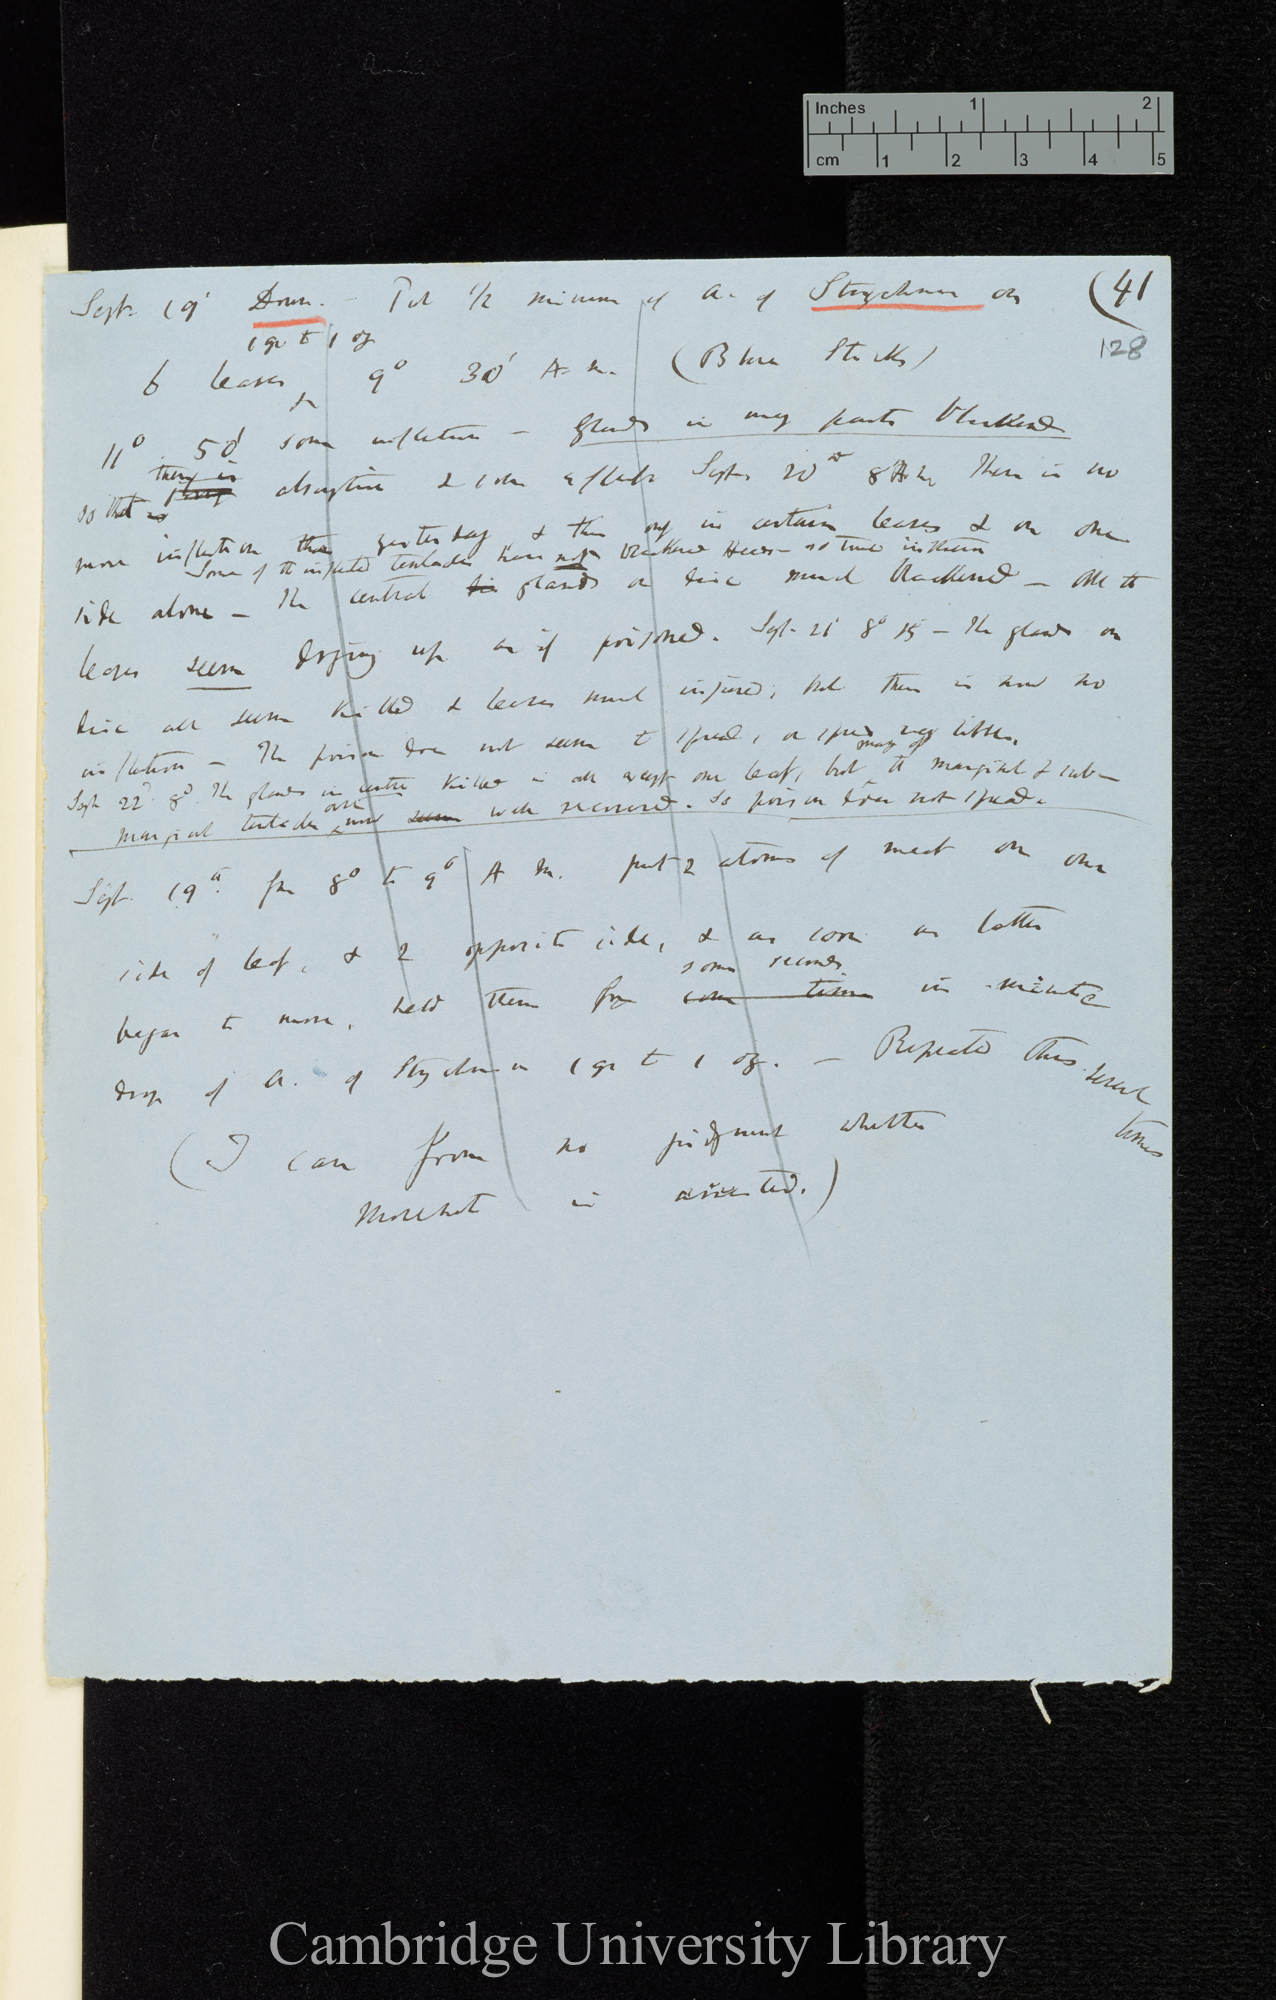 Inches 1 2
cm 1 2 3 4 5
(41
128
Sept. 19' Down. — Put 1/2 minim of a. of Strychnine on
1 gr to 1 oz
6 leaves 9° 30' A.m. (Blue Sticks)
11° 50' some inflection — glands in many parts blackened
so that there is absorption & some effect Sept. 20th 8° A.m. There is no
more inflection than yesterday & this only in certain leaves & on one
Some of the inflected tentacles have not blackened Heads — so true inflection
side alone — The central glands on disc much blackened — All the
leaves seem drying up as if poisoned. Sept. 21' 8° 15 — The glands on
disc all seem killed & leaves much injured; but there is now no
inflection — The poison does not seem to spread, or spread very little.
Sept 22' 8°. The glands in centre killed in all except one leaf, but many of the marginal & sub-
marginal tentacles are now seem well recovered. So poison does not spread.
Sept. 19th. from 8° to 9° A m. put 2 atoms of meat on one
side of leaf, & 2 opposite side, & as soon as latter
began to move, held them for some time some seconds in minute
drop of a. of Strychnine 1 gr to 1 oz. — Repeated this several
times
(I can form no judgment whether
movement is arrested.)
Cambridge University Library